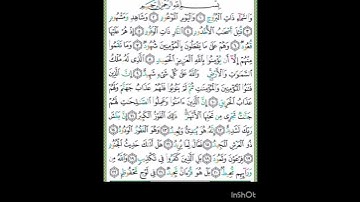 بِسْمِ ٱللَّهِ ٱلرَّحْمَٰنِ ٱلرَّحِيمِ
وَٱلسَّمَآءِ ذَاتِ ٱلْبُرُوجِ ١ وَٱلْيَوْمِ ٱلْمَوْعُودِ ٢ وَشَاهِدٍ وَمَشْهُودٍ
٣ قُتِلَ أَصْحَٰبُ ٱلْأُخْدُودِ ٤ ٱلنَّارِ ذَاتِ ٱلْوَقُودِ ٥ إِذْ هُمْ عَلَيْهَا
قُعُودٌ ٦ وَهُمْ عَلَىٰ مَا يَفْعَلُونَ بِٱلْمُؤْمِنِينَ شُهُودٌ ٧ وَمَا نَقَمُوا۟
مِنْهُمْ إِلَّآ أَن يُؤْمِنُوا۟ بِٱللَّهِ ٱلْعَزِيزِ ٱلْحَمِيدِ ٨ ٱلَّذِى لَهُۥ مُلْكُ
ٱلسَّمَٰوَٰتِ وَٱلْأَرْضِ وَٱللَّهُ عَلَىٰ كُلِّ شَىْءٍ شَهِيدٌ ٩ إِنَّ ٱلَّذِينَ
فَتَنُوا۟ ٱلْمُؤْمِنِينَ وَٱلْمُؤْمِنَٰتِ ثُمَّ لَمْ يَتُوبُوا۟ فَلَهُمْ عَذَابُ جَهَنَّمَ وَلَهُمْ
عَذَابُ ٱلْحَرِيقِ ١٠ إِنَّ ٱلَّذِينَ ءَامَنُوا۟ وَعَمِلُوا۟ ٱلصَّٰلِحَٰتِ لَهُمْ
جَنَّٰتٌ تَجْرِى مِن تَحْتِهَا ٱلْأَنْهَٰرُ ذَٰلِكَ ٱلْفَوْزُ ٱلْكَبِيرُ ١١ إِنَّ بَطْشَ
رَبِّكَ لَشَدِيدٌ ١٢ إِنَّهُۥ هُوَ يُبْدِئُ وَيُعِيدُ ١٣ وَهُوَ ٱلْغَفُورُ ٱلْوَدُودُ ١٤
ذُو ٱلْعَرْشِ ٱلْمَجِيدُ ١٥ فَعَّالٌ لِّمَا يُرِيدُ ١٦ هَلْ أَتَىٰكَ حَدِيثُ ٱلْجُنُودِ ١٧
فِرْعَوْنَ وَثَمُودَ ١٨ بَلِ ٱلَّذِينَ كَفَرُوا۟ فِى تَكْذِيبٍ ١٩ وَٱللَّهُ مِن
وَرَآئِهِم مُّحِيطٌۢ ٢٠ بَلْ هُوَ قُرْءَانٌ مَّجِيدٌ ٢١ فِى لَوْحٍ مَّحْفُوظٍۭ ٢٢
InShOt